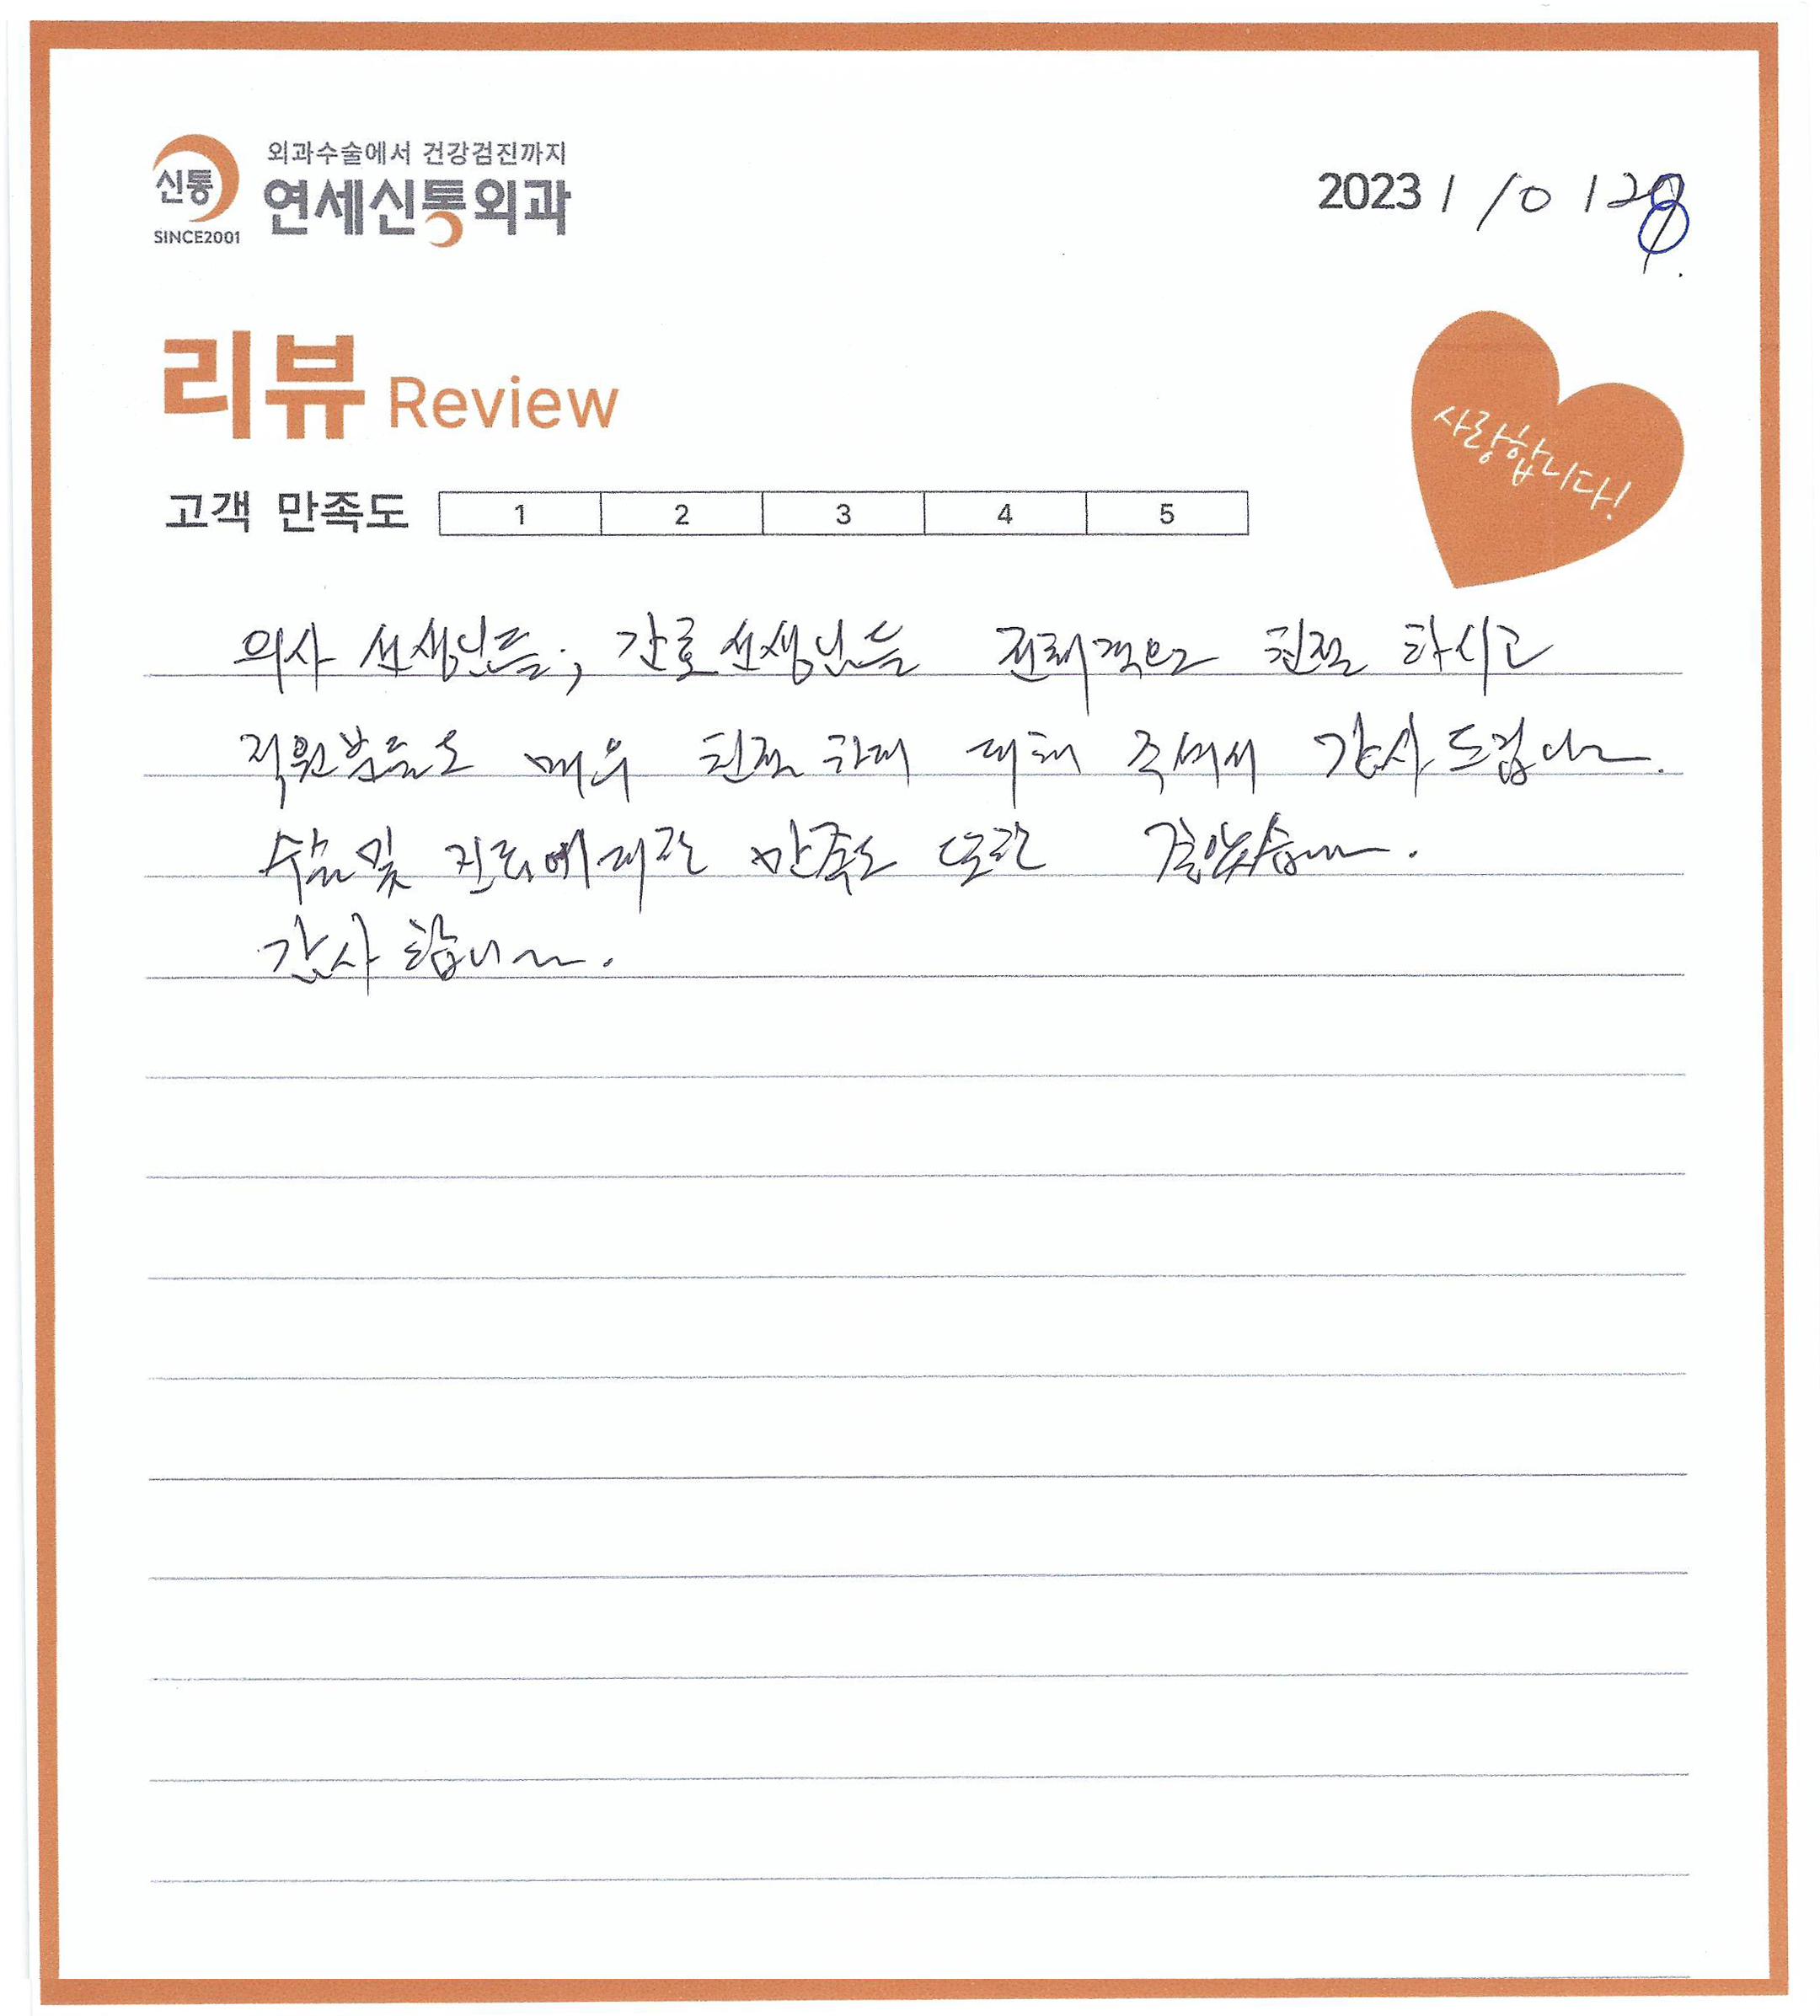 외과수술에서 건강검진까지
신통 연세신통외과
SINCE2001
2023 / 10 / 28
리뷰 Review
사랑합니다!
고객 만족도 1 2 3 4 5
의사 선생님들, 간호 선생님들 전체적으로 친절 하시고
직원분들도 매우 친절 하게 대해 주셔서 감사 드립니다.
수술 및 진료에 대한 만족도 또한 좋았습니다.
감사 합니다.